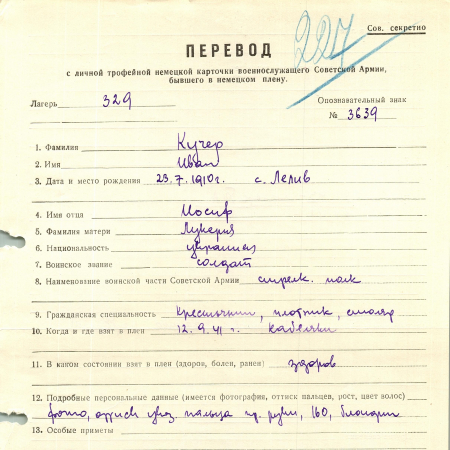 227
Сов. секретно
ПЕРЕВОД
с личной трофейной немецкой карточки военнослужащего Советской Армии,
бывшего в немецком плену.
Лагерь 329
Опознавательный знак
№ 3639
1. Фамилия Кучер
2. Имя Иван
3. Дата и место рождения 23.7.1910г. с. Лелив
4. Имя отца Иосиф
5. Фамилия матери Лукерия
6. Национальность украинец
7. Воинское звание солдат
8. Наименование воинской части Советской Армии стрелк. полк
9. Гражданская специальность Крестьянин, плотник, столяр
10. Когда и где взят в плен 12.9.41г. Кабеляки
11. В каком состоянии взят в плен (здоров, болен, ранен) здоров
12. Подробные персональные данные (имеется фотография, оттиск пальцев, рост, цвет волос)
фото, оттиск указ. пальца пр. руки, 160, блондин
13. Особые приметы